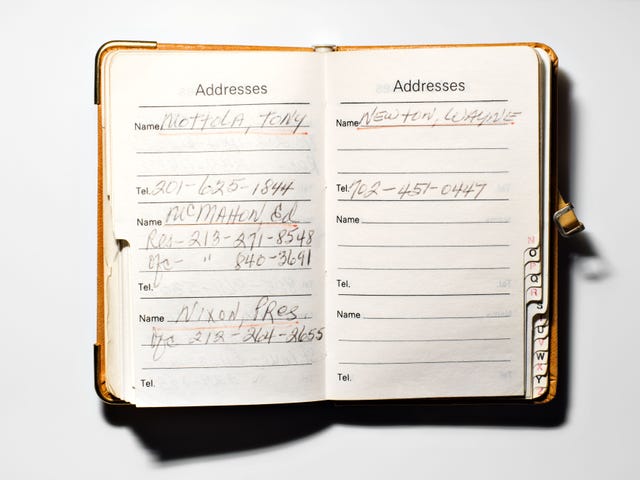 Addresses
Name MOTTOLA, TONY
Tel. 201-625-1844
Name McMAHON, Ed
Res- 213-271-8548
ofc- " 840-3691
Tel.
Name NIXON, PRES.
ofc 212-264-2655
Tel.
Addresses
Name NEWTON, WAYNE
Tel. 702-451-0447
Name
Tel.
Name
Tel.
N
O
P
Q
R
S
U
W
Y
Z